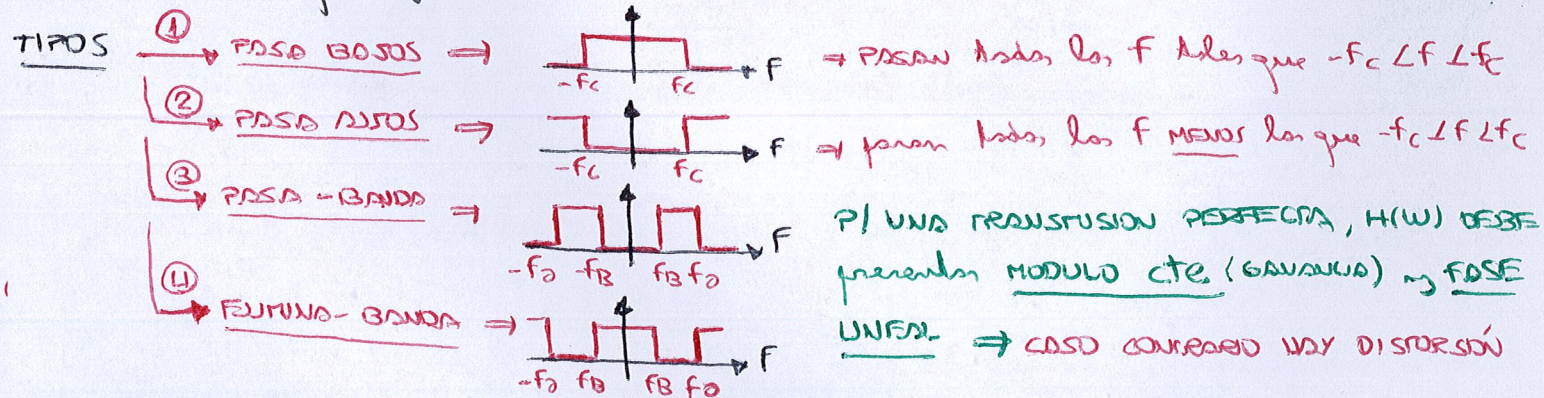 TIPOS ① PASA BAJOS ⇒ -fc fc F ⇒ PASAN todas las f tales que -fc < f < fc
② PASA ALTOS ⇒ -fc fc F ⇒ pasan todas las f MENOS las que -fc < f < fc
③ PASA-BANDA ⇒ -fa -fB fB fa F
P/ UNA TRANSMISION PERFECTA, H(W) DEBE
presentar MODULO cte (GANANCIA) y FASE
LINEAL ⇒ CASO CONTRARIO HAY DISTORSIÓN
④ ELIMINA-BANDA ⇒ -fa fB fB fa F